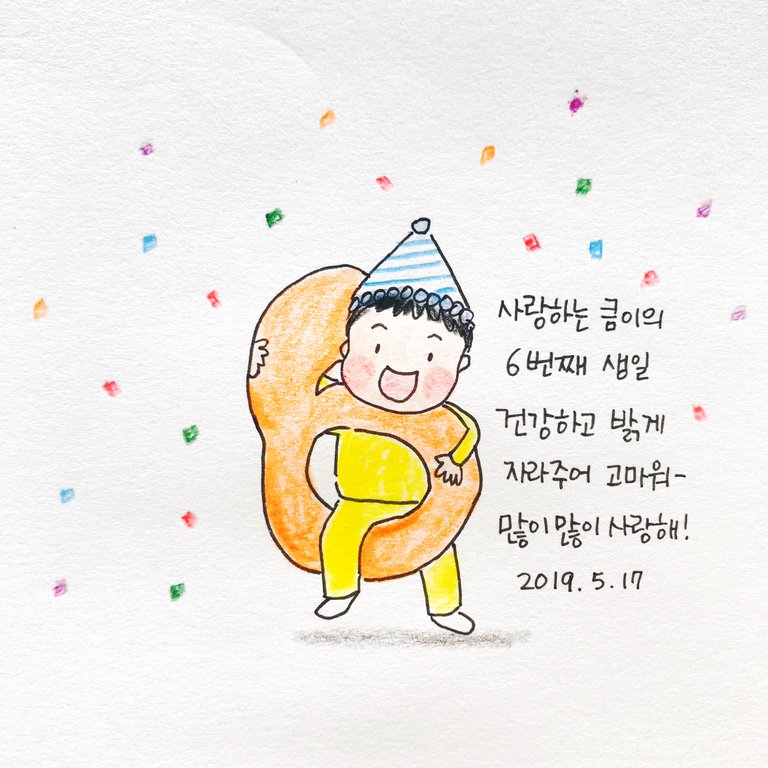 사랑하는 큼이의
6번째 생일
건강하고 밝게
자라주어 고마워~
많이 많이 사랑해!
2019. 5. 17